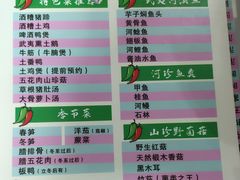 特色菜推荐
酒糟猪蹄
酒糟土鸡
啤酒鸭煲
武夷熏土鹅
牛筋（牛腩煲）
土番鸭
土鸡煲（提前预约）
五花肉山珍菇
草根猪肚汤
大骨萝卜汤
冬节菜
春笋
洋茄
冬笋
蕨菜
腊排骨（冬至过后）
腊五花肉（冬至过后）
板鸭
芋子焖鱼头
黄骨鱼
河鲶鱼
鲫板鱼
河鲤鱼
酱油水鱼
河珍鱼类
甲鱼
桂鱼
河鳗
石林
山珍野菌菇
野生红菇
天然椴木香菇
黑木耳